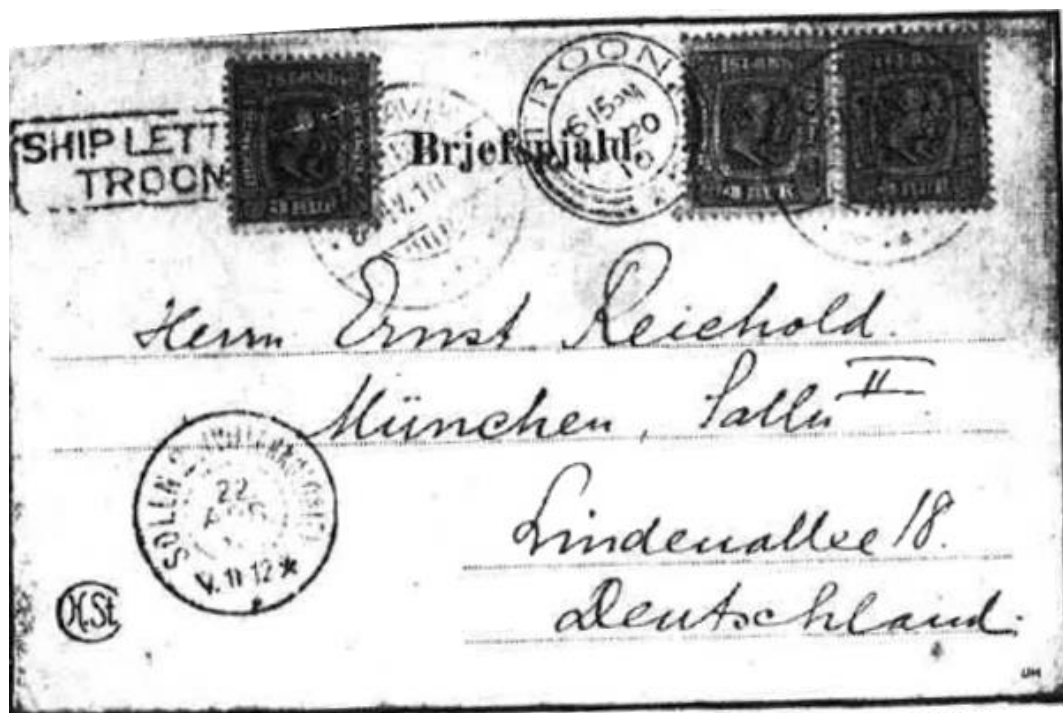 SHIP LETT
TROON
ISLAND
Brjefspjald.
TROON
6 15 PM
20
10
ISLAND
ISLAND
Herrn Ernst Reichold.
München, Solln II
Lindenallee 18.
Deutschland.
SOLLN 2
22
V. 11-12 *
H.St
UM